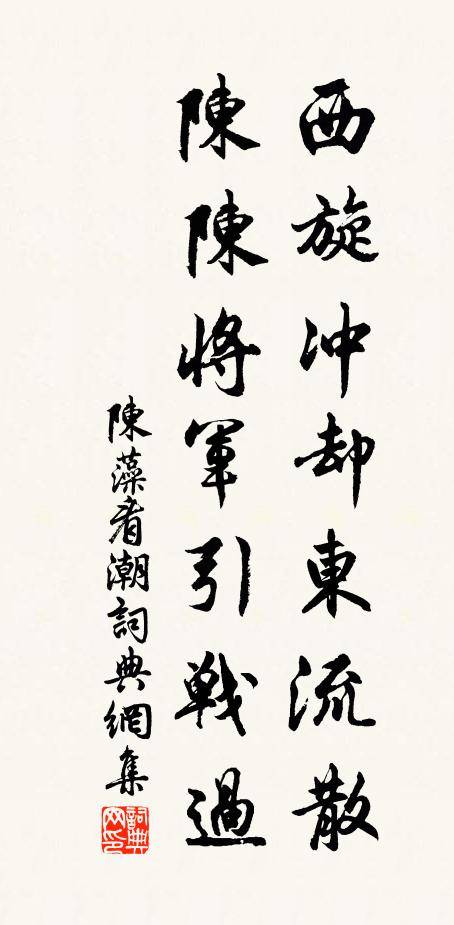 西旋冲却東流散
陳陳將軍引戰過
陳藻看潮詞典網集
詞典網印